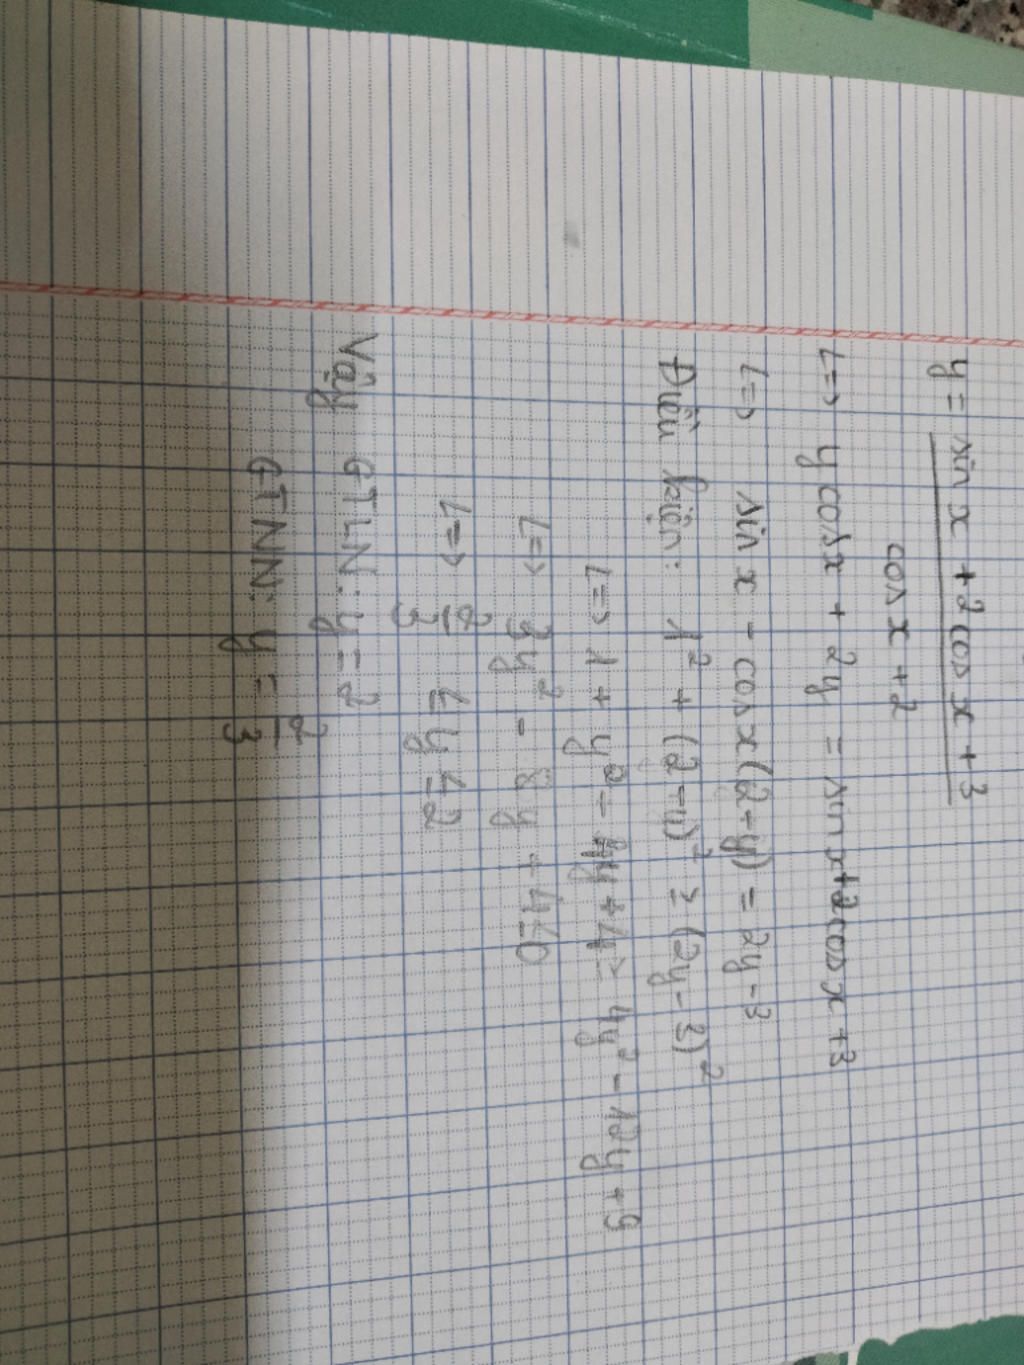 y = sin x + 2cos x + 3
cos x + 2
<=> y cos x + 2y = sin x + 2cos x + 3
<=> sin x - cos x (2-y) = 2y-3
Điều kiện: 1² + (2-y)² ≥ (2y-3)²
<=> 1 + y² - 4y + 4 ≥ 4y² - 12y + 9
<=> 3y² - 8y + 4 ≤ 0
<=> 2/3 ≤ y ≤ 2
Vậy GTLN: y = 2
GTNN: y = 2/3